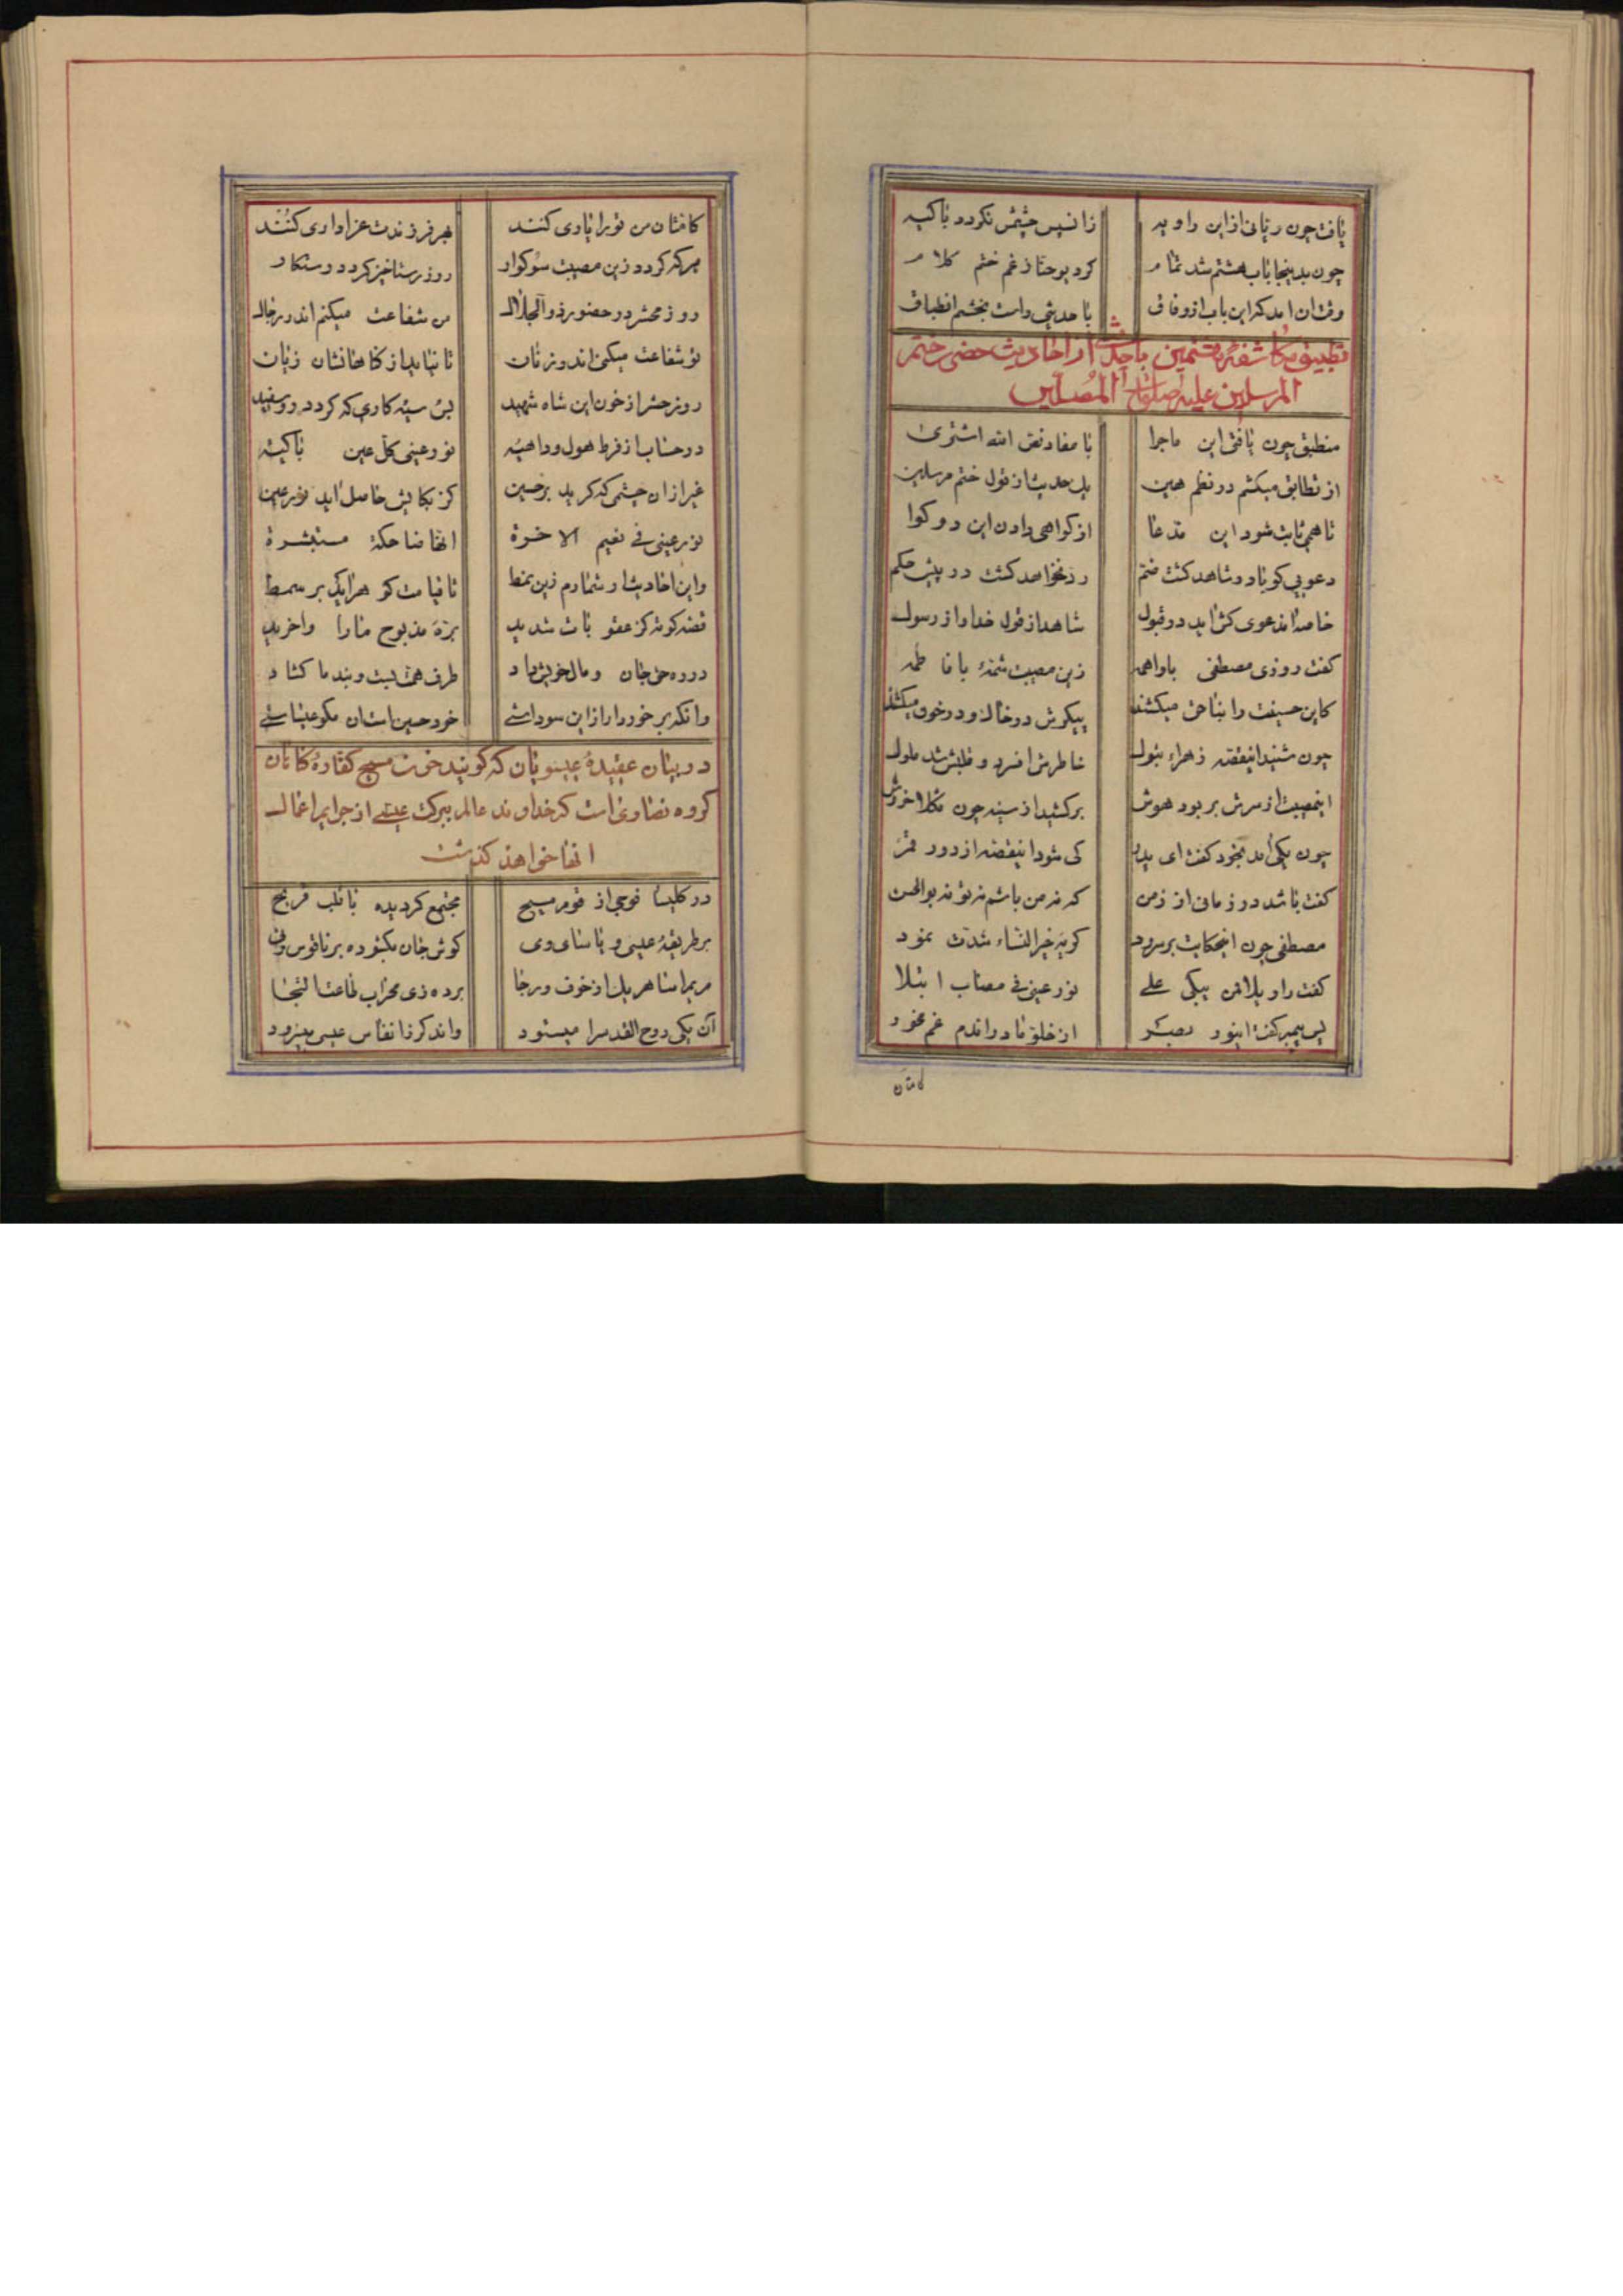 یافت چون ربانی از این راویه زانیس چشمش نکردد باکیه
چون بدینجا باب هشتم شد تمام کرد یوحنا ز غم ختم کلام
وقت ان امد که این باب از وفاق با حدیثی دامت بخشم انطباق
تطبیق مکاشفهٔ هشتمین با یک از احادیث حضرت ختم
المرسلین علیه صلوات المصلین
منطبق چون یافتی این ماجرا با مفاد نص الله اشتری
از تطابق میکشم در نظم هین یک حدیث از قول ختم مرسلین
تا همی ثابت شود این مدعا از کواهی دادن این دو کوا
دعویی کو با دو شاهد کشت ضم رد نخواهد کشت در پیش حکم
خاصه اندعوی کش اید در قبول شاهد از قول خدا و از رسول
کفت روزی مصطفی با واهمه زین مصیبت شمهٔ با فاطمه
کاین حسینت را بناحق میکشند پیکرش در خاک و در خون میکشند
چون شنید اینقصه زهراء بتول خاطرش افسرد و قلبش شد ملول
اینمصیبت از سرش بربود هوش برکشید از سینه چون ثکلا خروش
چون یکی امد بخود کفت ای پدر کی شود اینقصه از دور قمر
کفت باشد در زمانی از زمن که نه من باشم نه تو نه بوالحسن
مصطفی چون اینحکایت بر سرود کریه خیر النساء شدت نمود
کفت راویلا فمن یبکی علی نور عینی فی مصاب ابتلا
پس پیمبر کفت اینور بصر از خلوّ نادر اندم غم مخور
کامتان
کامتان من تو را یاری کنند بهر فرزندت عزاداری کنند
هرکه کردد زین مصیبت سوکوار روز رستاخیز کردد رستکار
روز محشر در حضور ذو الجلال من شفاعت میکنم اندر رجال
تو شفاعت میکنی اندر زنان تا نیاید از کناهانشان زیان
روز حشر از خون این شاه شهید بس سیه کاری که کردد رو سفید
در حساب از فرط هول و داهیه نور عینی کل عین باکیه
غیر از ان چشمی که کرید بر حسین کز بکایش حاصل اید نور عین
نور عینی فی نعیم الاخرة انها ضاحکة مستبشرة
واین احادیث ار شمارم زین نمط تا قیامت کو هرایک بر سمط
قصه کوته کز عفو بات شدید برّه مذبوح ما را واخرید
در ره حق جان و مال خویش داد طرف همت بست و بند ما کشاد
وانکه برخوردار از این سوداستی خود حسین است ان مکو عیساستی
در بیان عقیدهٔ عیسویان که کویند خون مسیح کفارهٔ کناهان
کروه نصاری است که خداوند عالم ببرکت عیسی از جرایم اعمال
انها خواهد کذشت
در کلیسا فوجی از قوم مسیح مجتمع کردیده با قلب قریح
بر طریقهٔ عیسی و یاسای وی کوش جان بکشوده بر ناقوس وی
مریم اسا هریک از خوف و رجا برده زی محراب طاعت التجا
آن یکی روح القدس را میستود واندکر ز انفاس عیسی میسرود